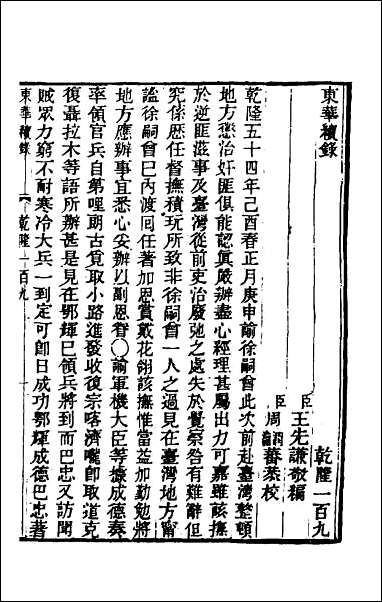 東華續錄 乾隆一百九
臣王先謙敬編
臣周潤瀹蕃恭校
乾隆五十四年己酉春正月庚申諭徐嗣曾此次前赴臺灣整頓
地方懲治奸匪俱能認眞嚴辦盡心經理甚屬出力可嘉雖該撫
於逆匪滋事及臺灣從前吏治廢弛之處失於覺察咎有難辭但
究係歷任督撫積玩所致非徐嗣曾一人之過見在臺灣地方甯
謐徐嗣曾已內渡回任著加恩賞戴花翎該撫惟當益加勤勉將
地方應辦事宜悉心妥辦以副恩眷○諭軍機大臣等據成德奏
率領官兵自第哩朗古覓取小路進發收復宗喀濟嚨卽取道克
復聶拉木等語所辦甚是見在鄂輝已領兵將到而巴忠又訪聞
賊眾力窮不耐寒冷大兵一到定可卽日成功鄂輝成德巴忠著
東華續錄 乾隆一百九